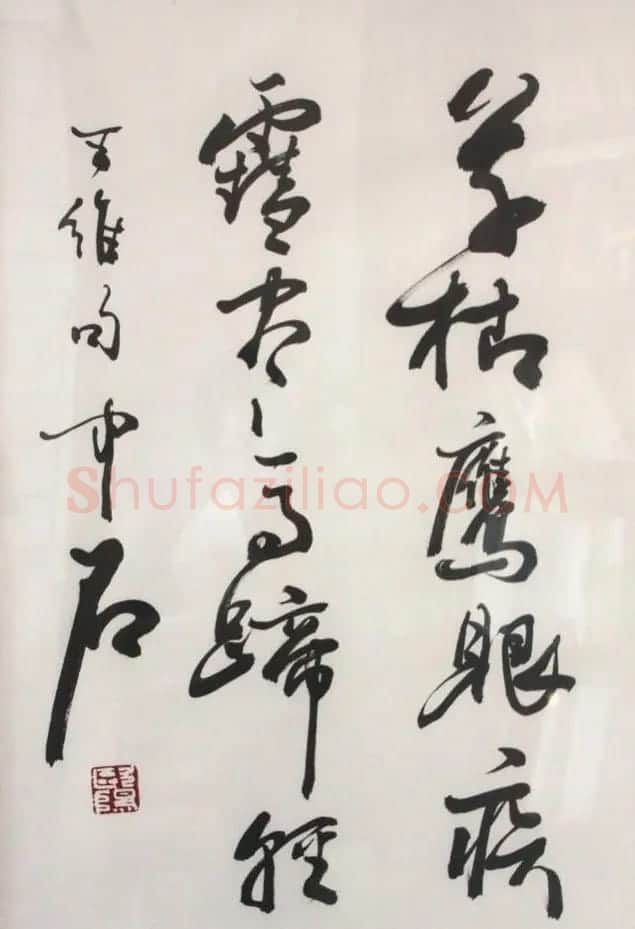 草枯鹰眼疾
雪尽马蹄轻
王维句中石
Shufaziliao.COM